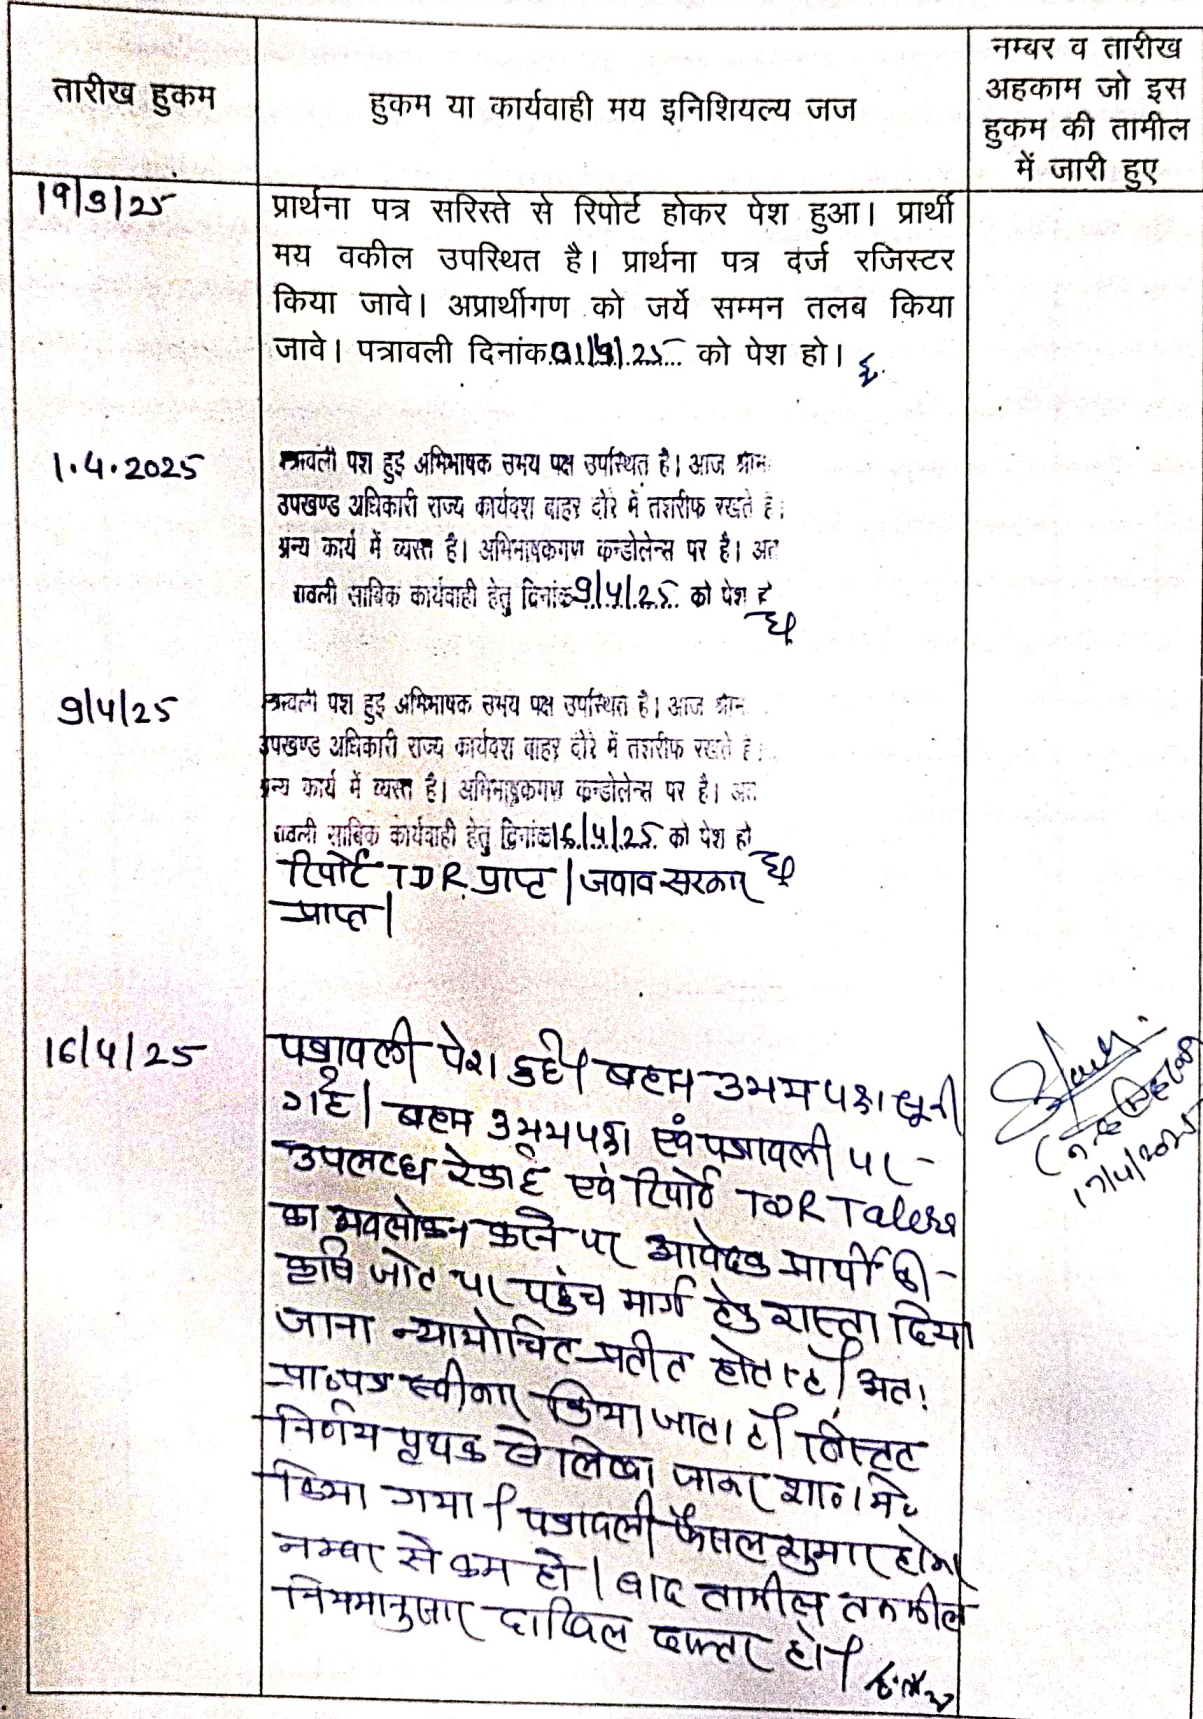 तारीख हुकम
हुकम या कार्यवाही मय इनिशियल्य जज
नम्बर व तारीख
अहकाम जो इस
हुकम की तामील
में जारी हुए
19/3/25
प्रार्थना पत्र सरिस्ते से रिपोर्ट होकर पेश हुआ। प्रार्थी
मय वकील उपस्थित है। प्रार्थना पत्र दर्ज रजिस्टर
किया जावे। अप्रार्थीगण को जर्ये सम्मन तलब किया
जावे। पत्रावली दिनांक 01/4/25 को पेश हो।
1.4.2025
त्रावली पेश हुई अभिभाषक उभय पक्ष उपस्थित है। आज श्रीम
उपखण्ड अधिकारी राज्य कार्यवश बाहर दौरे में तशरीफ रखते है।
अन्य कार्य में व्यस्त है। अभिभाषकगण कन्डोलेन्स पर है। अत
रावली साबिक कार्यवाही हेतु दिनांक 9/4/25 को पेश ह
9/4/25
त्रावली पेश हुई अभिभाषक उभय पक्ष उपस्थित है। आज श्रीम
उपखण्ड अधिकारी राज्य कार्यवश बाहर दौरे में तशरीफ रखते है।
अन्य कार्य में व्यस्त है। अभिभाषकगण कन्डोलेन्स पर है। अत
रावली साबिक कार्यवाही हेतु दिनांक 16/4/25 को पेश हो
रिपोर्ट TDR प्राप्त। जवाब सरकार
प्राप्त।
16/4/25
पत्रावली पेश हुई। बहस उभय पक्ष सुनी
गई। बहस उभय पक्ष एवं पत्रावली पर
उपलब्ध रेकार्ड एवं रिपोर्ट TDR Talera
का अवलोकन करने पर आवेदक प्रार्थी की
कृषि जोत पर पहुंच मार्ग हेतु रास्ता दिया
जाना न्यायोचित प्रतीत होता है। अतः
प्रा०पत्र स्वीकार किया जाता है। विस्तृत
निर्णय पृथक से लिखा जाकर शा०मि०
किया गया। पत्रावली फैसल शुमार होकर
नम्बर से कम हो। बाद तामील तकमील
नियमानुसार दाखिल दफ्तर हो।
17/4/2025